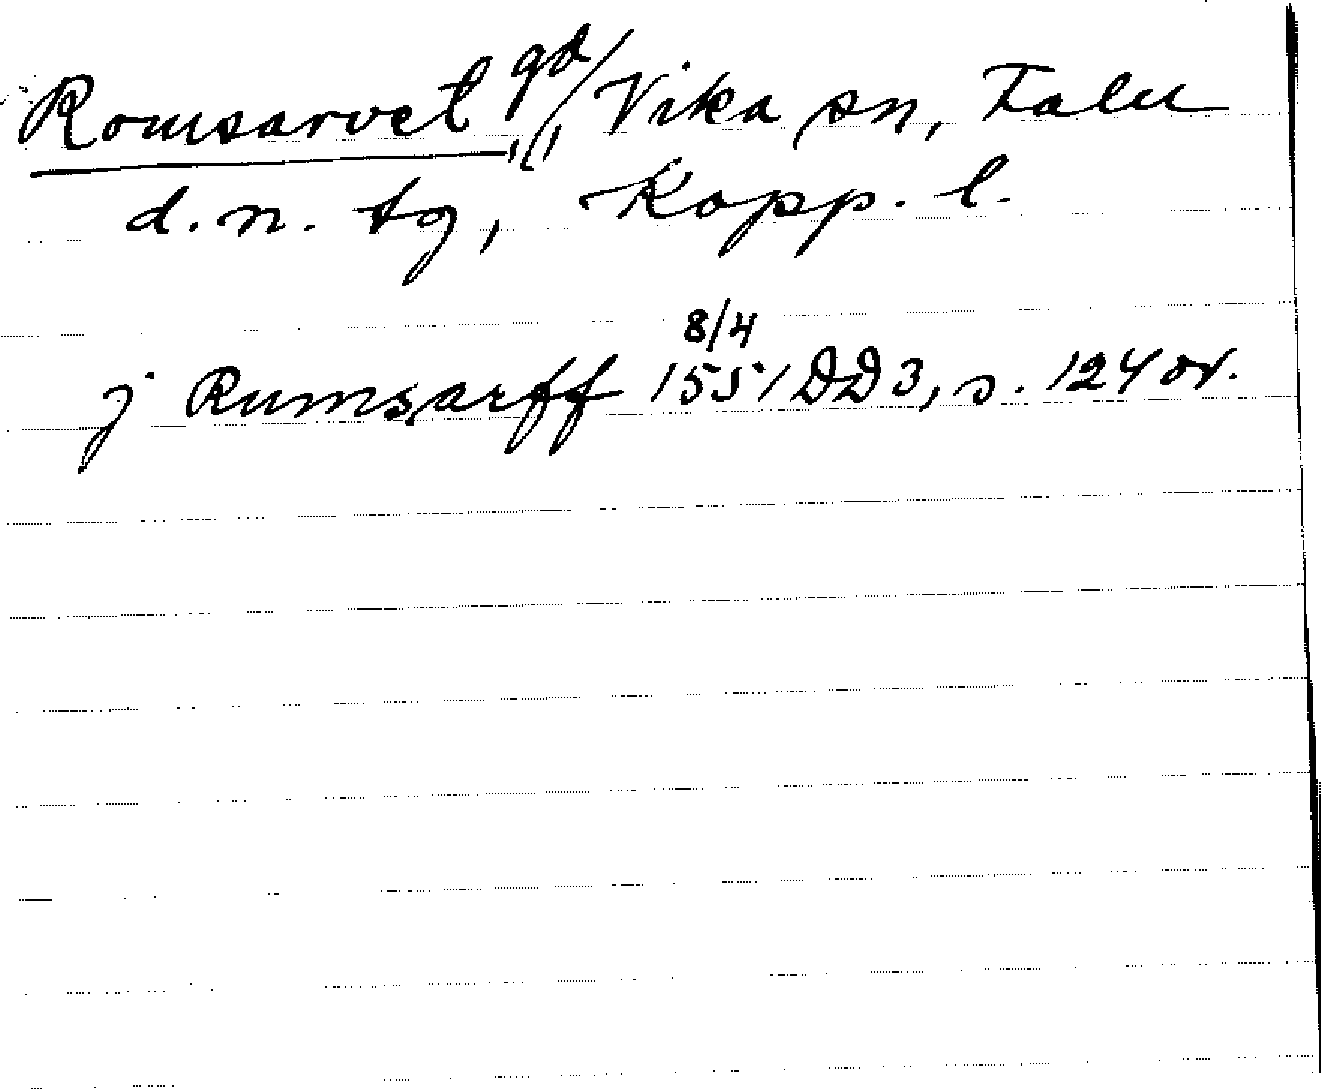 Romsarvet gd/ Vika sn, Falu
d.n. tg, Kopp. l.
8/4
j Rumsarff 1551 DD3, s. 124 öv.